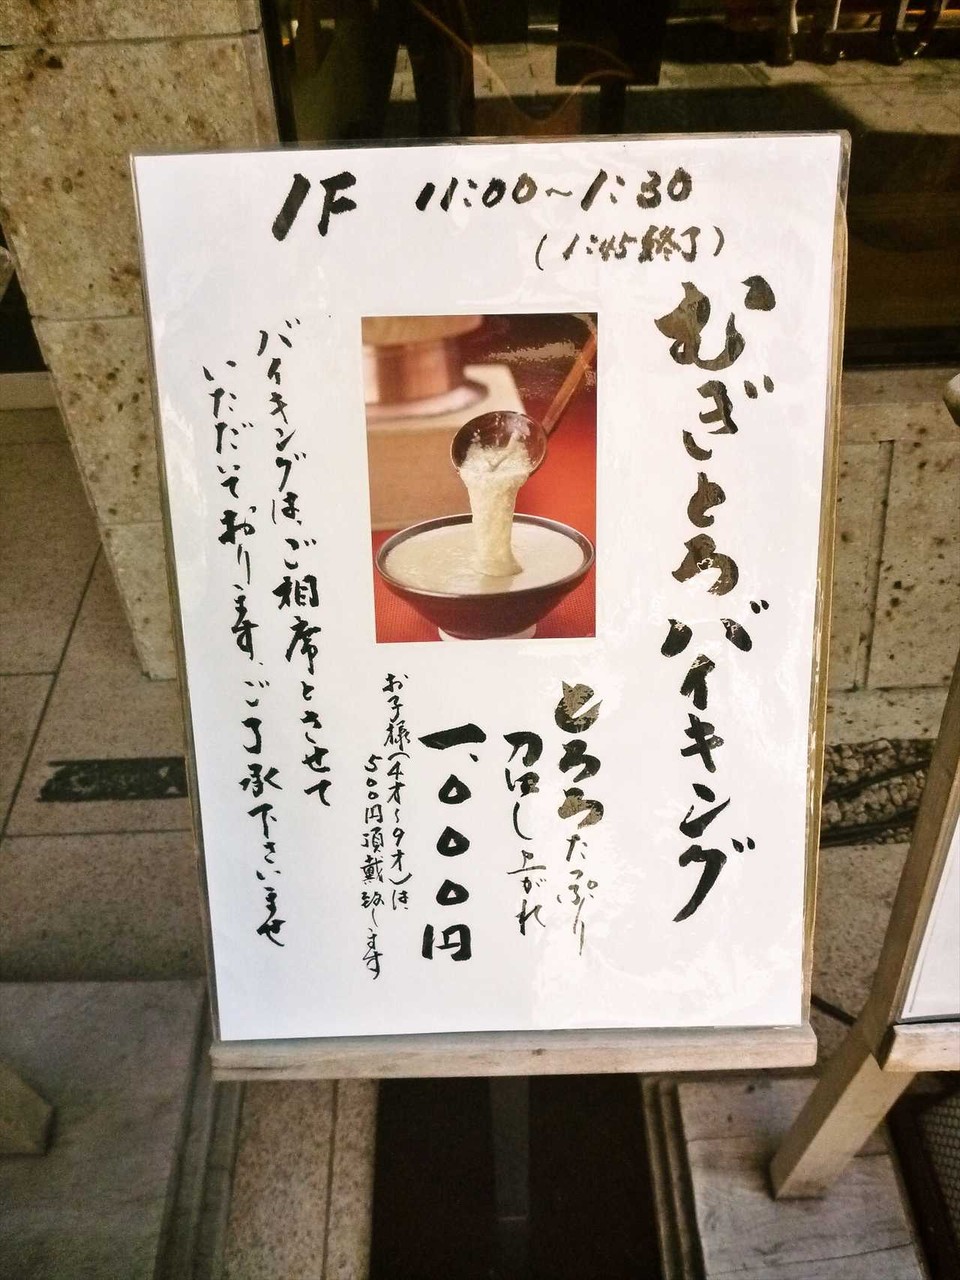 1F 11:00~1:30
(1:45終了)
むぎとろバイキング
とろろたっぷり
召し上がれ
一、〇〇〇円
お子様(4才~9才)は、
五〇〇円頂戴致します
バイキングは、ご相席とさせて
いただいております、ご了承下さいませ